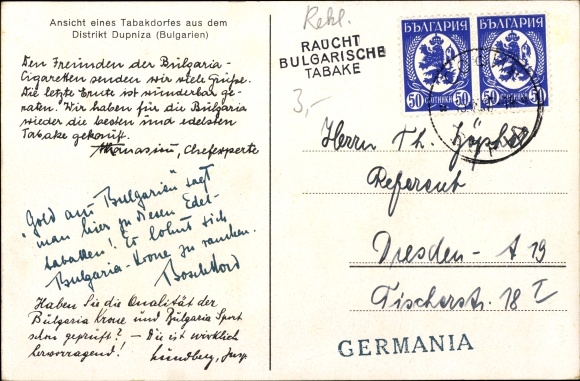 Ansicht eines Tabakdorfes aus dem
Distrikt Dupniza (Bulgarien)
Den Freunden der Bulgaria-
Cigaretten senden wir viele Grüße.
Die letzte Ernte ist wunderbar ge-
raten." Wir haben für die Bulgaria
wieder die besten und edelsten
Tabake gekauft.
Athanasiu, Chefexperte
"Gold aus Bulgarien" sagt
man hier zu diesen Edel-
tabaken! Es lohnt sich
Bulgaria-Krone zu rauchen.
Haben Sie die Qualität der
Bulgaria Krone und Bulgaria Sport
schon geprüft? - Die ist wirklich
hervorragend! Lundberg, Insp.
Rekl.
RAUCHT
BULGARISCHE
TABAKE
3,-
БЪЛГАРИЯ БЪЛГАРИЯ
50 СТОТИНКИ 50 50 СТОТИНКИ 50
Herrn Th.
Referent
Dresden - A 19
Tischerstr. 18 I
GERMANIA